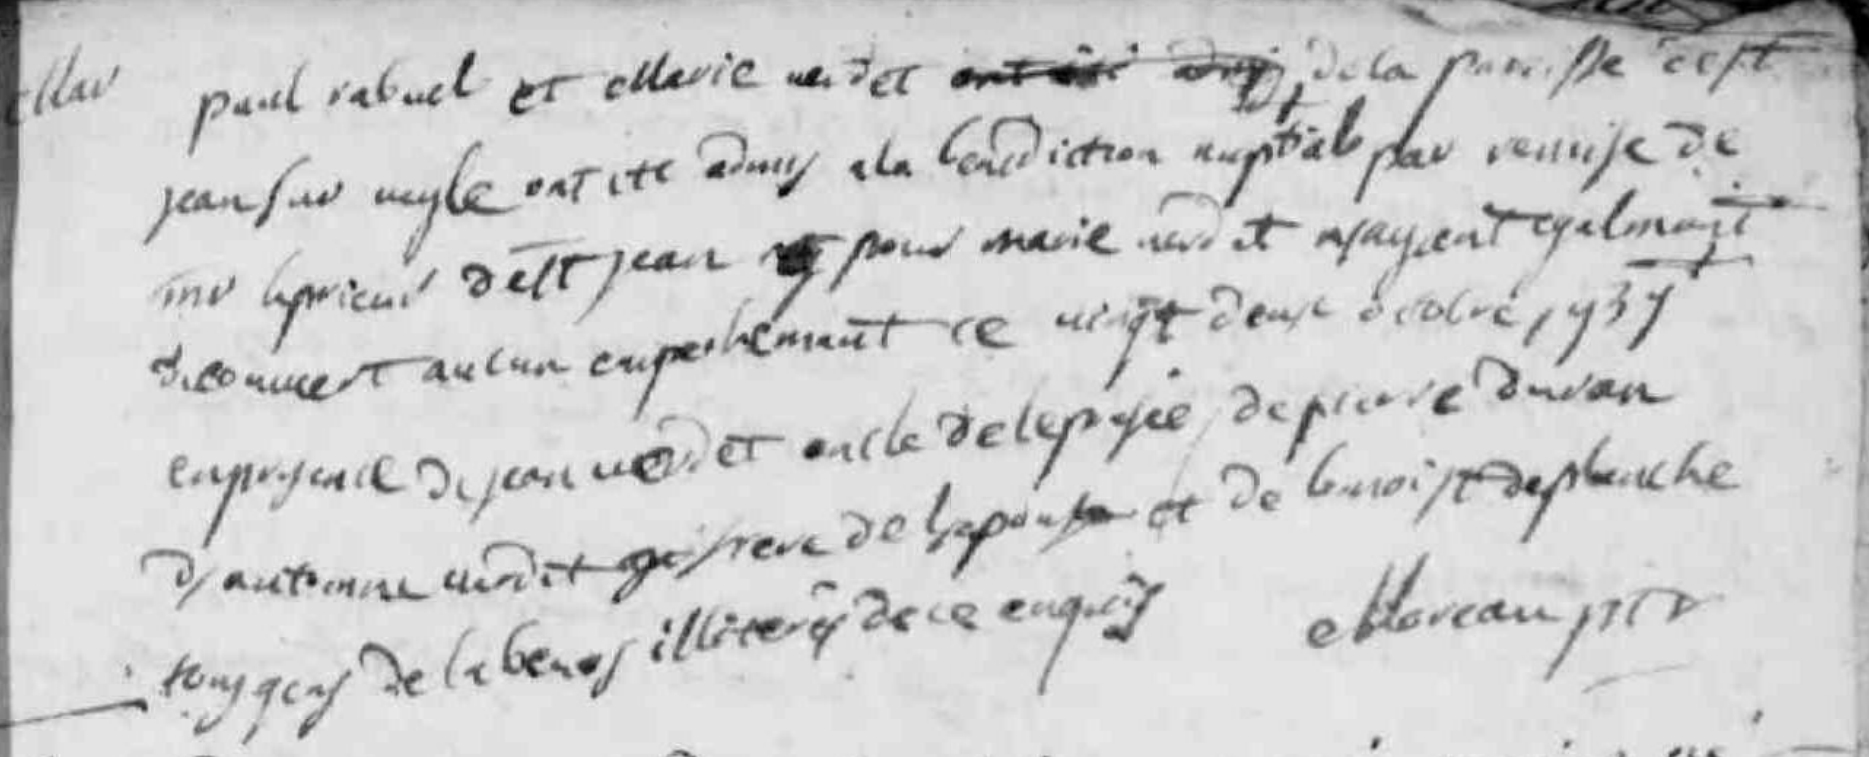 Mar paul rabuel et Marie verdet de la parroisse de st
jean sur veyle ont ete admis a la benediction nuptiale par remise de
mr le prieur de st jean pour marie verdet n'ayant egalment
decouvert aucun empechement ce vingt deux octobre 1737
en presence de jean verdet oncle de lepouse, de pierre duvan
d'antoinne verdet frere de lepouse et de benoist desplanche
tous gens de labeur illiterés de ce enquis Moreau ptr